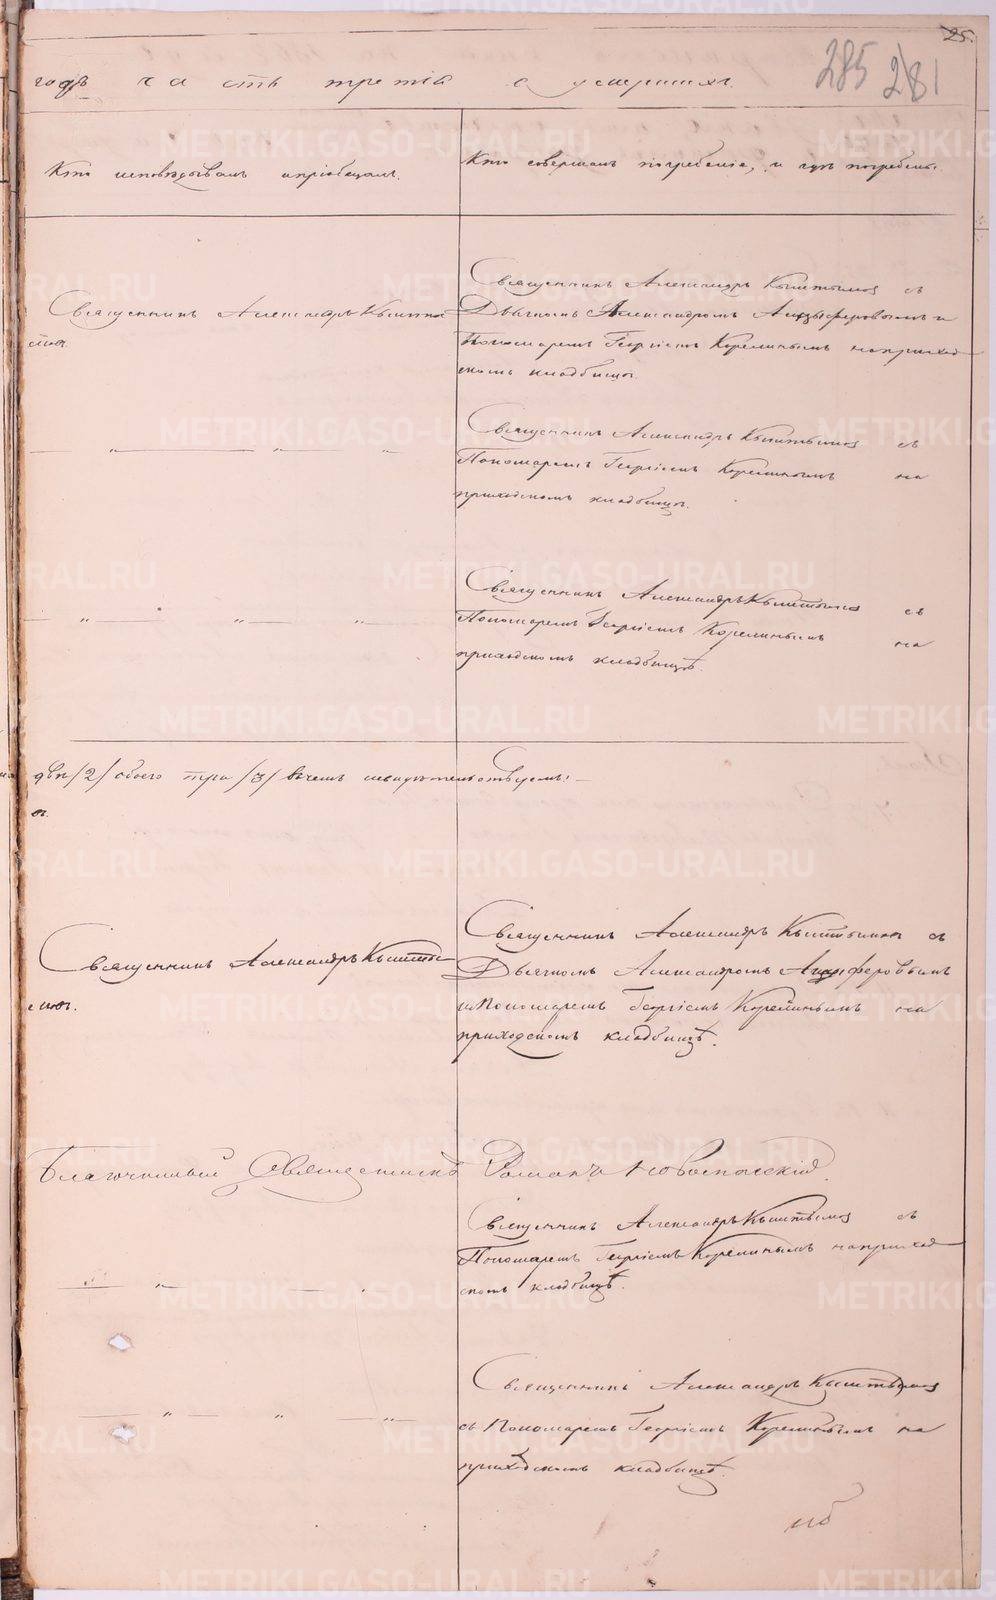 25.
285 281
годъ часть третія о умершихъ.
Кто исповѣдывалъ и пріобщалъ.
Кто совершалъ погребеніе, и гдѣ погребены.
Священникъ Александръ Кыштымовъ съ
Священникъ Александръ Кышты
Дьячкомъ Александромъ Анцыферовымъ и
мовъ.
Пономаремъ Георгіемъ Корелинымъ на приход
скомъ кладбищѣ.
Священникъ Александръ Кыштымовъ съ
— „ — „ — „
Пономаремъ Георгіемъ Корелинымъ на
приходскомъ кладбищѣ.
Священникъ Александръ Кыштымовъ съ
— „ — „ — „
Пономаремъ Георгіемъ Корелинымъ на
приходскомъ кладбищѣ.
двѣ /2/ обоего три /3/ въ чемъ свидѣтельствуемъ: —
Священникъ Александръ Кыштымовъ съ
Священникъ Александръ Кышты
Дьячкомъ Александромъ Анциферовымъ
мовъ.
и Пономаремъ Георгіемъ Корелинымъ на
приходскомъ кладбищѣ.
Благочинный Священникъ Романъ
Священникъ Александръ Кыштымовъ съ
Пономаремъ Георгіемъ Корелинымъ на приход
— „ — „ —
скомъ кладбищѣ.
Священникъ Александръ Кыштымовъ
— „ — „ — „ —
съ Пономаремъ Георгіемъ Корелинымъ на
приходскомъ кладбищѣ.
METRIKI.GASO-URAL.RU